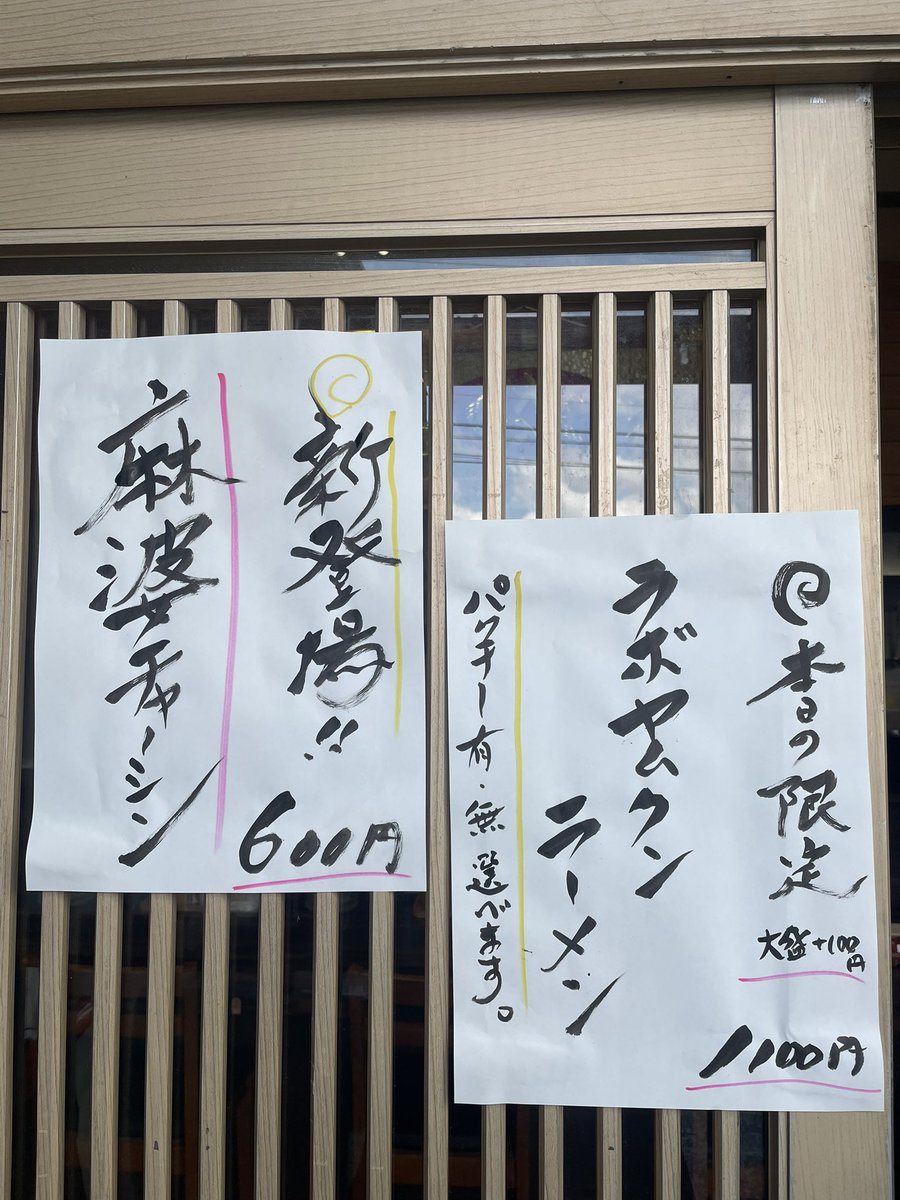 新登場!!
麻婆チャーシン
600円
本日の限定
大盛+100円
ラボヤムクン
ラーメン
パクチー有・無 選べます。
1100円